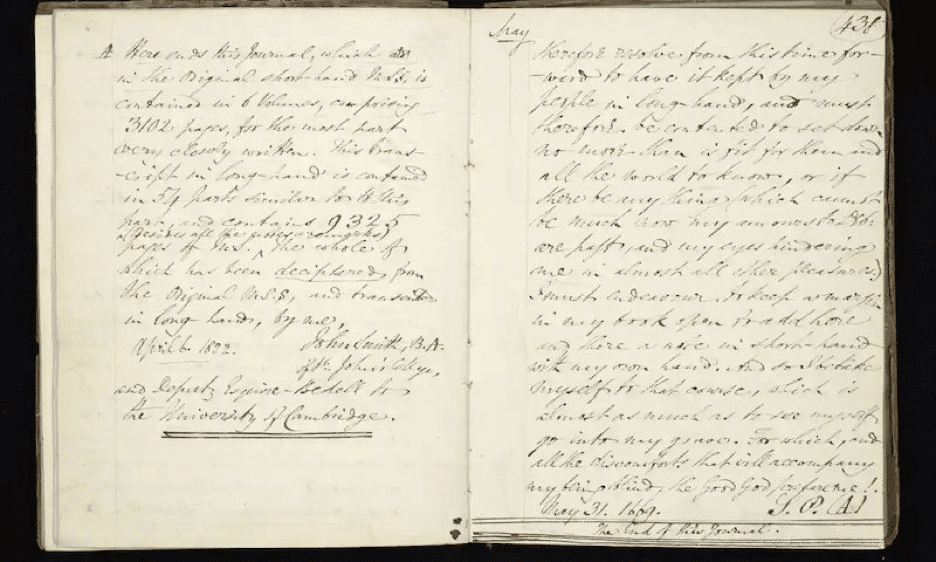 A Here ends this Journal, which
in the Original short-hand M.S.S. is
contained in 6 Volumes, comprising
3102 pages, for the most part
very closely written. This trans-
-cript in long-hand is contained
in 54 parts similar to this
part, and contains 9325
(besides all the
pages of M.S. The whole of
which has been deciphered, from
the Original M.S.S., and transcribed
in long hand, by me,
April 6 1822. John Smith, B.A.
of St. John's College,
and Deputy Esquire-Bedell to
the University of Cambridge.
May (438
therefore resolve from this time for-
-ward to have it kept by my
people in long-hand, and must
therefore be contented to set down
no more than is fit for them and
all the world to know, or if
there be any thing (which cannot
be much now my amours to Deb:
are past, and my eyes hindering
me in almost all other pleasures)
I must endeavour to keep a margin
in my book open to add here
and there a note in short-hand
with my own hand. And so I betake
myself to that course, which is
almost as much as to see myself
go into my grave. For which, and
all the discomforts that will accompany
my being blind, the Good God prepare me!
May 31. 1669. S. P. (A)
The End of this Journal.